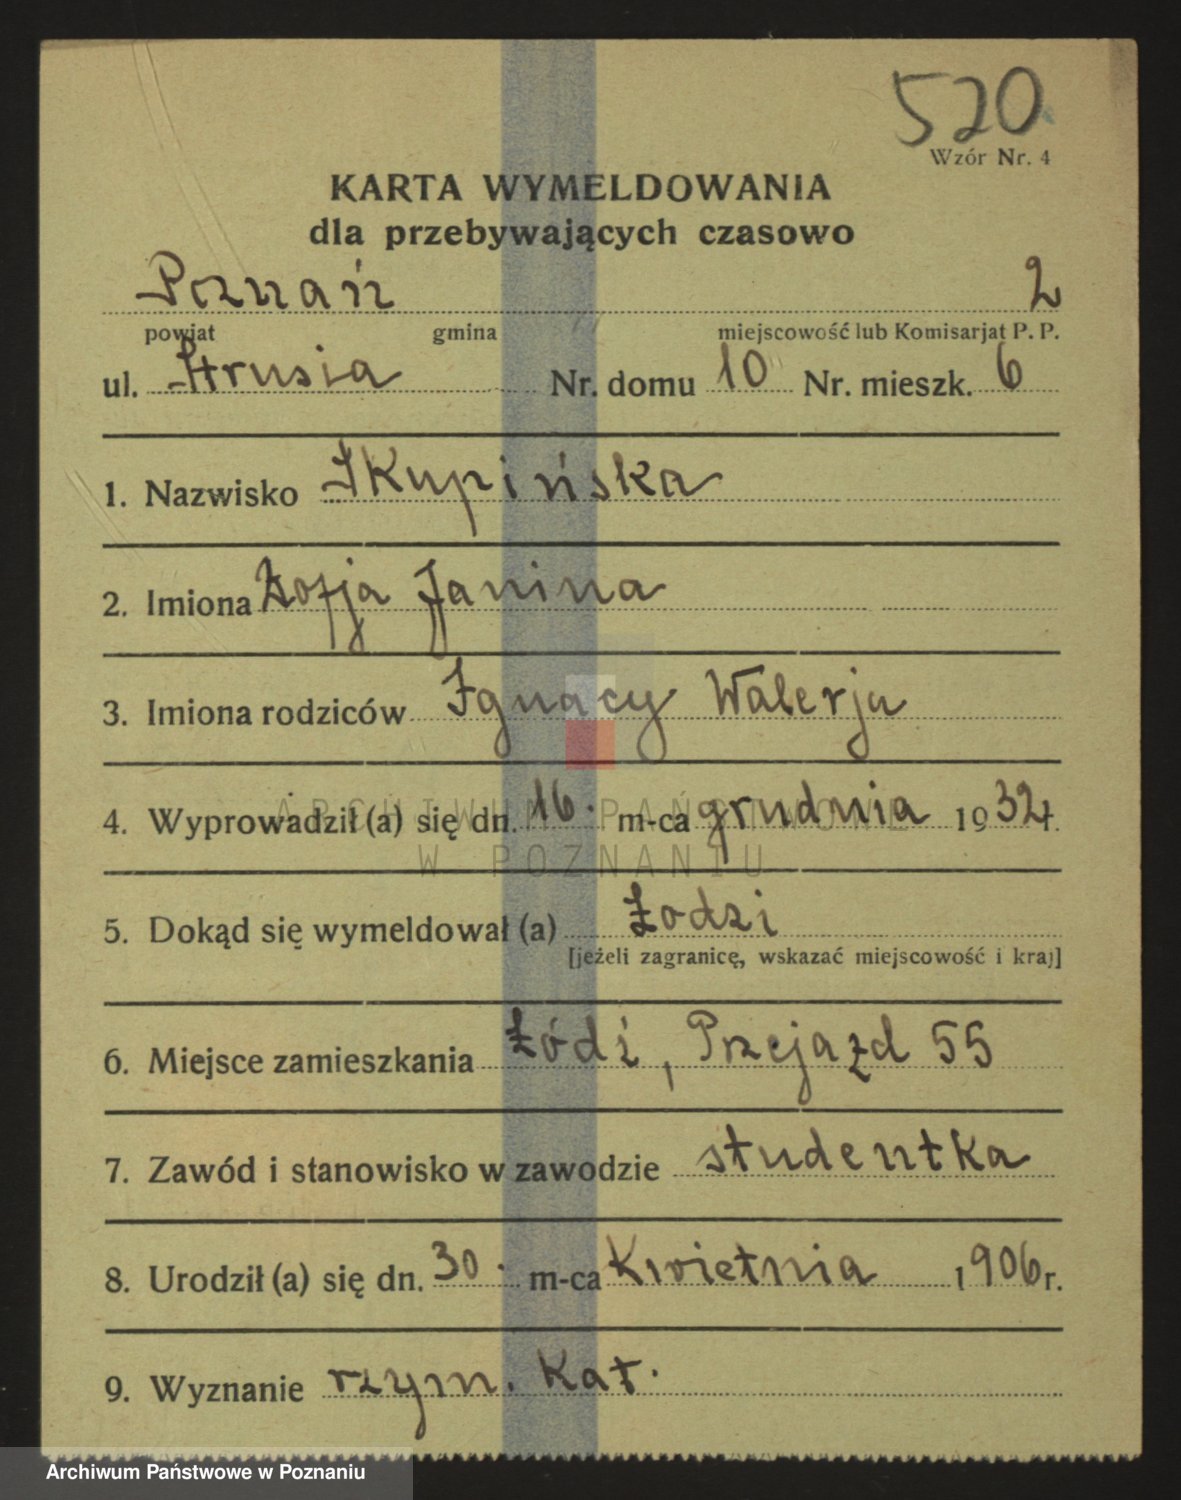 520
Wzór Nr. 4
KARTA WYMELDOWANIA
dla przebywających czasowo
Poznań 2
powiat gmina miejscowość lub Komisarjat P. P.
ul. Strusia Nr. domu 10 Nr. mieszk. 6
1. Nazwisko Skupińska
2. Imiona Zofja Janina
3. Imiona rodziców Ignacy Walerja
4. Wyprowadził (a) się dn. 16. m-ca grudnia 1932 r.
ARCHIWUM PAŃSTWOWE
W POZNANIU
5. Dokąd się wymeldował (a) Łodzi
[jeżeli zagranicę, wskazać miejscowość i kraj]
6. Miejsce zamieszkania Łódź, Przejazd 55
7. Zawód i stanowisko w zawodzie studentka
8. Urodził (a) się dn. 30. m-ca Kwietnia 1906 r.
9. Wyznanie rzym. Kat.
Archiwum Państwowe w Poznaniu